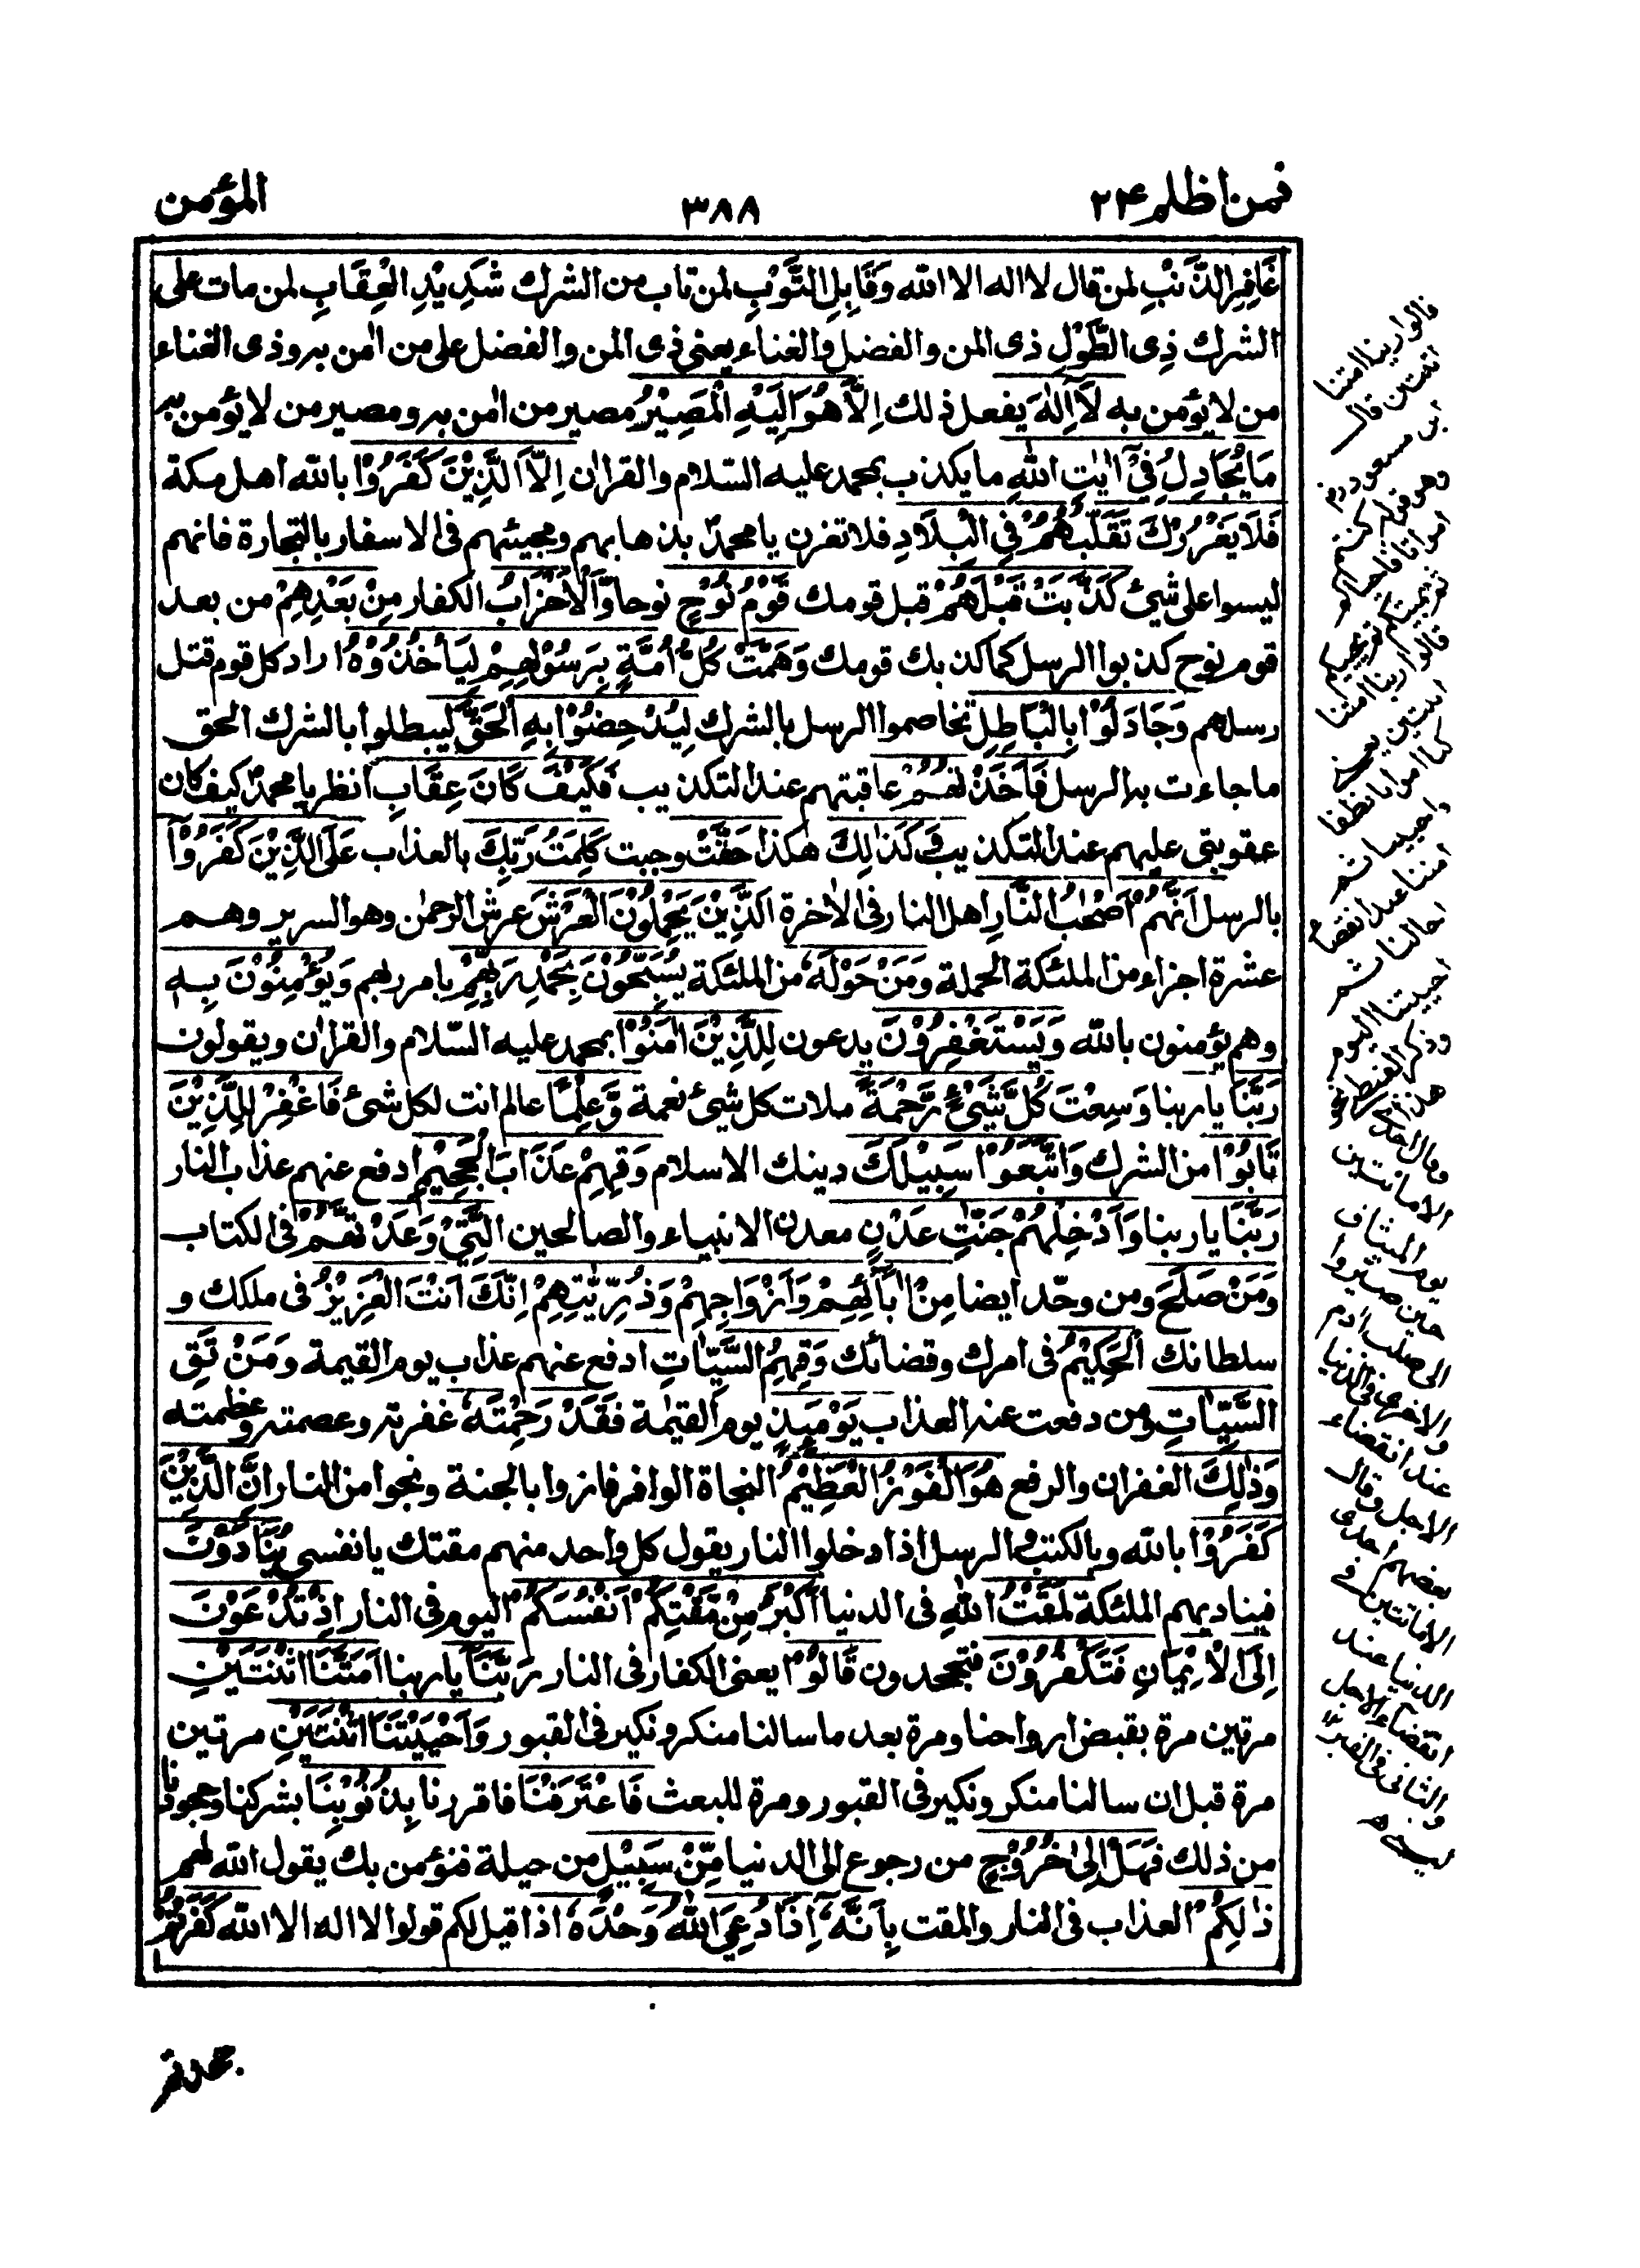 فمن اظلم ٢٤
٣٨٨
المؤمن
غَافِرِ الذَّنْبِ لمن قال لا اله الا الله وَقَابِلِ التَّوْبِ لمن تاب من الشرك شَدِيْدِ الْعِقَابِ لمن مات على
الشرك ذِى الطَّوْلِ ذى المن والفضل والغناء يعنى ذى المن والفضل على من اٰمن به وذى الغناء
من لا يؤمن به لَآ اِلٰهَ يفعل ذلك اِلَّا هُوَ اِلَيْهِ الْمَصِيْرُ مصير من اٰمن به ومصير من لا يؤمن به
مَا يُجَادِلُ فِىْٓ اٰيٰتِ اللّٰهِ ما يكذب بمحمد عليه السّلام والقراٰن اِلَّا الَّذِيْنَ كَفَرُوْا بالله اهل مكة
فَلَا يَغْرُرْكَ تَقَلُّبُهُمْ فِى الْبِلَادِ فلا تغرن يا محمدؐ بذهابهم ومجيئهم فى الاسفار بالتجارة فانهم
ليسوا على شيئ كَذَّبَتْ قَبْلَهُمْ قبل قومك قَوْمُ نُوْحٍ نوحا وَّالْاَحْزَابُ الكفار مِنْۢ بَعْدِهِمْ من بعد
قوم نوح كذبوا الرسل كما كذبك قومك وَهَمَّتْ كُلُّ اُمَّةٍۭ بِرَسُوْلِهِمْ لِيَاْخُذُوْهُ اراد كل قوم قتل
رسلهم وَجَادَلُوْا بِالْبَاطِلِ تخاصموا الرسل بالشرك لِيُدْحِضُوْا بِهِ الْحَقَّ ليبطلوا بالشرك الحق
ما جاءت به الرسل فَاَخَذْتُهُمْ عاقبتهم عند التكذيب فَكَيْفَ كَانَ عِقَابِ انظر يا محمدؐ كيف كان
عقوبتى عليهم عند التكذيب وَكَذٰلِكَ هكذا حَقَّتْ وجبت كَلِمَتُ رَبِّكَ بالعذاب عَلَى الَّذِيْنَ كَفَرُوْآ
بالرسل اَنَّهُمْ اَصْحٰبُ النَّارِ اهل النار فى الاٰخرة اَلَّذِيْنَ يَحْمِلُوْنَ الْعَرْشَ عرش الرحمٰن وهو السرير وهم
عشرة اجزاء من الملئكة الحملة وَمَنْ حَوْلَهٗ من الملئكة يُسَبِّحُوْنَ بِحَمْدِ رَبِّهِمْ بامر ربهم وَيُؤْمِنُوْنَ بِهٖ
وهم يؤمنون بالله وَيَسْتَغْفِرُوْنَ يدعون لِلَّذِيْنَ اٰمَنُوْا بمحمد عليه السّلام والقراٰن ويقولون
رَبَّنَا يا ربنا وَسِعْتَ كُلَّ شَىْءٍ رَّحْمَةً ملات كل شئ نعمة وَّعِلْمًا عالم انت لكل شئ فَاغْفِرْ لِلَّذِيْنَ
تَابُوْا من الشرك وَاتَّبَعُوْا سَبِيْلَكَ دينك الاسلام وَقِهِمْ عَذَابَ الْجَحِيْمِ ادفع عنهم عذاب النار
رَبَّنَا يا ربنا وَاَدْخِلْهُمْ جَنّٰتِ عَدْنِ معدن الانبياء والصالحين الَّتِىْ وَعَدْتَّهُمْ فى الكتاب
وَمَنْ صَلَحَ ومن وحّد ايضا مِنْ اٰبَآئِهِمْ وَاَزْوَاجِهِمْ وَذُرِّيّٰتِهِمْ اِنَّكَ اَنْتَ الْعَزِيْزُ فى ملكك و
سلطانك الْحَكِيْمُ فى امرك وقضائك وَقِهِمُ السَّيِّاٰتِ ادفع عنهم عذاب يوم القيمة وَمَنْ تَقِ
السَّيِّاٰتِ ومن دفعت عنه العذاب يَوْمَئِذٍ يوم القيٰمة فَقَدْ رَحِمْتَهٗ غفرته وعصمته وعظمته
وَذٰلِكَ الغفران والرفع هُوَ الْفَوْزُ الْعَظِيْمُ النجاة الوافر فازوا بالجنة ونجوا من النار اِنَّ الَّذِيْنَ
كَفَرُوْا بالله وبالكتب والرسل اذا دخلوا النار يقول كل واحد منهم مقتك يا نفسى يُنَادَوْنَ
فيناديهم الملئكة لَمَقْتُ اللّٰهِ فى الدنيا اَكْبَرُ مِنْ مَّقْتِكُمْ اَنْفُسَكُمْ اليوم فى النار اِذْ تُدْعَوْنَ
اِلَى الْاِيْمَانِ فَتَكْفُرُوْنَ فتجحدون قَالُوْا يعنى الكفار فى النار رَبَّنَآ يا ربنا اَمَتَّنَا اثْنَتَيْنِ
مرتين مرة بقبض ارواحنا ومرة بعد ما سالنا منكر ونكير فى القبور وَاَحْيَيْتَنَا اثْنَتَيْنِ مرتين
مرة قبل ان سالنا منكر ونكير فى القبور ومرة للبعث فَاعْتَرَفْنَا فاقررنا بِذُنُوْبِنَا بشركنا وجحودنا
من ذلك فَهَلْ اِلٰى خُرُوْجٍ من رجوع الى الدنيا مِّنْ سَبِيْلٍ من حيلة فنؤمن بك يقول الله لهم
ذٰلِكُمْ العذاب فى النار والمقت بِاَنَّهٗٓ اِذَا دُعِىَ اللّٰهُ وَحْدَهٗ اذا قيل لكم قولوا لا اله الا الله كَفَرْتُمْ
قالوا ربنا امتنا
اثنتين قال
ابن مسعود رض
وهو قوله كنتم
امواتا فاحياكم
ثم يميتكم ثم يحييكم
قالوا ربنا امتنا
اثنتين يعنى
كنا امواتا نطفا
واحييتنا ثم
امتنا عند انقضاء
اجالنا ثم
احييتنا اليوم
الاماتتين
يوم الميثاق
حين صيروا
الى صلب ادم
والاخرى فى الدنيا
عند انقضاء
الاجل وقال
بعضهم احدى
الاماتتين فى
الدنيا عند
انقضاء الاجل
والثانى فى القبر